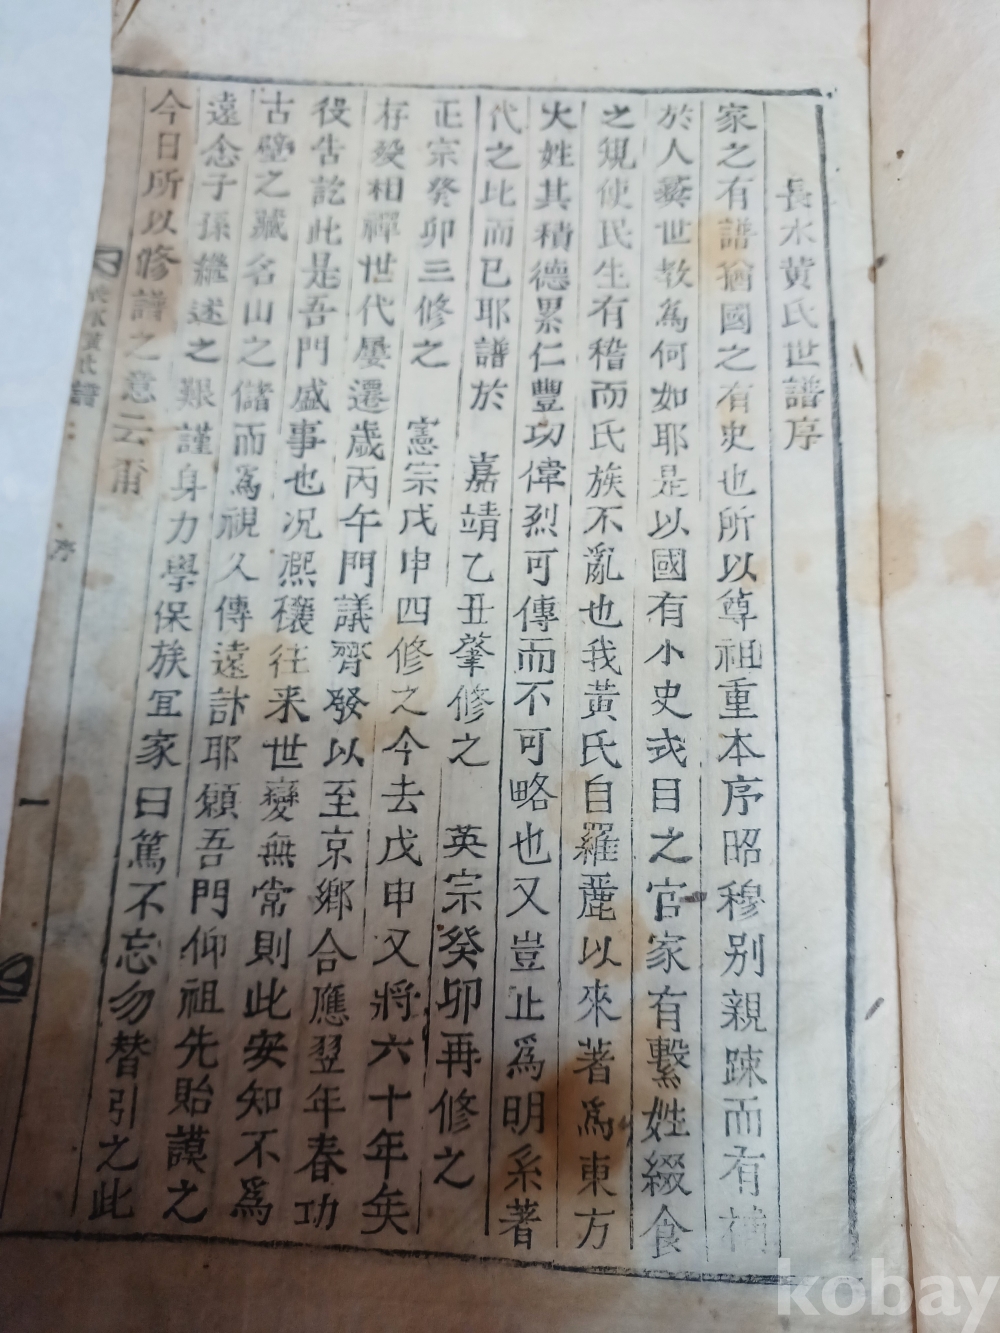 長水黃氏世譜序
家之有譜猶國之有史也所以尊祖重本序昭穆别親踈而有補
於人彛世教爲何如耶是以國有小史戎目之官家有繫姓綴食
之規使民生有稽而氏族不亂也我黃氏自羅麗以來著爲東方
大姓其積德累仁豐功偉烈可傳而不可略也又豈止爲明系著
代之比而已耶譜於 嘉靖乙丑肇修之 英宗癸卯再修之
正宗癸卯三修之 憲宗戊申四修之今去戊申又將六十年矣
存歿相禪世代屢遷歲丙午門議齊發以至京鄉合應翌年春功
役告訖此是吾門盛事也况凞穰往来世變無常則此安知不爲
古壁之藏名山之儲而爲視久傳遠計耶願吾門仰祖先貽謨之
遠念子孫繼述之艱謹身力學保族宜家曰篤不忘勿替引之此
今日所以修譜之意云甭
序
一
kobay